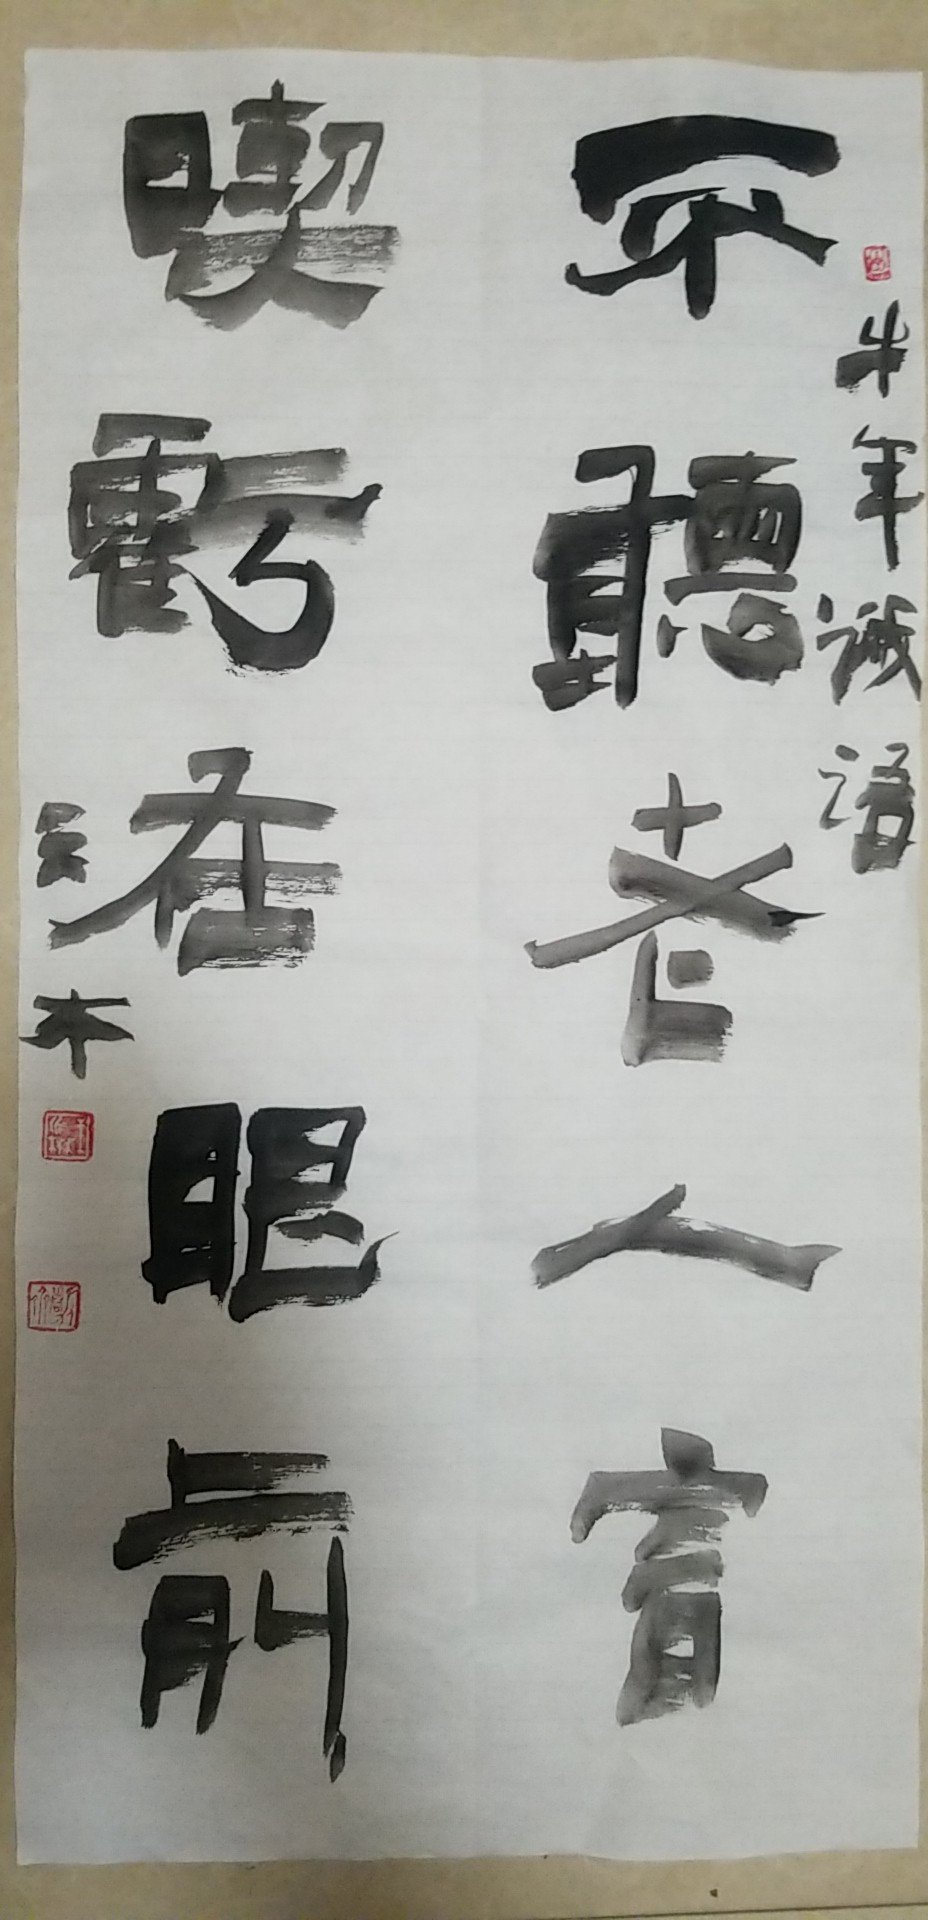 牛年诫语
不聽老人言
喫虧在眼前
木